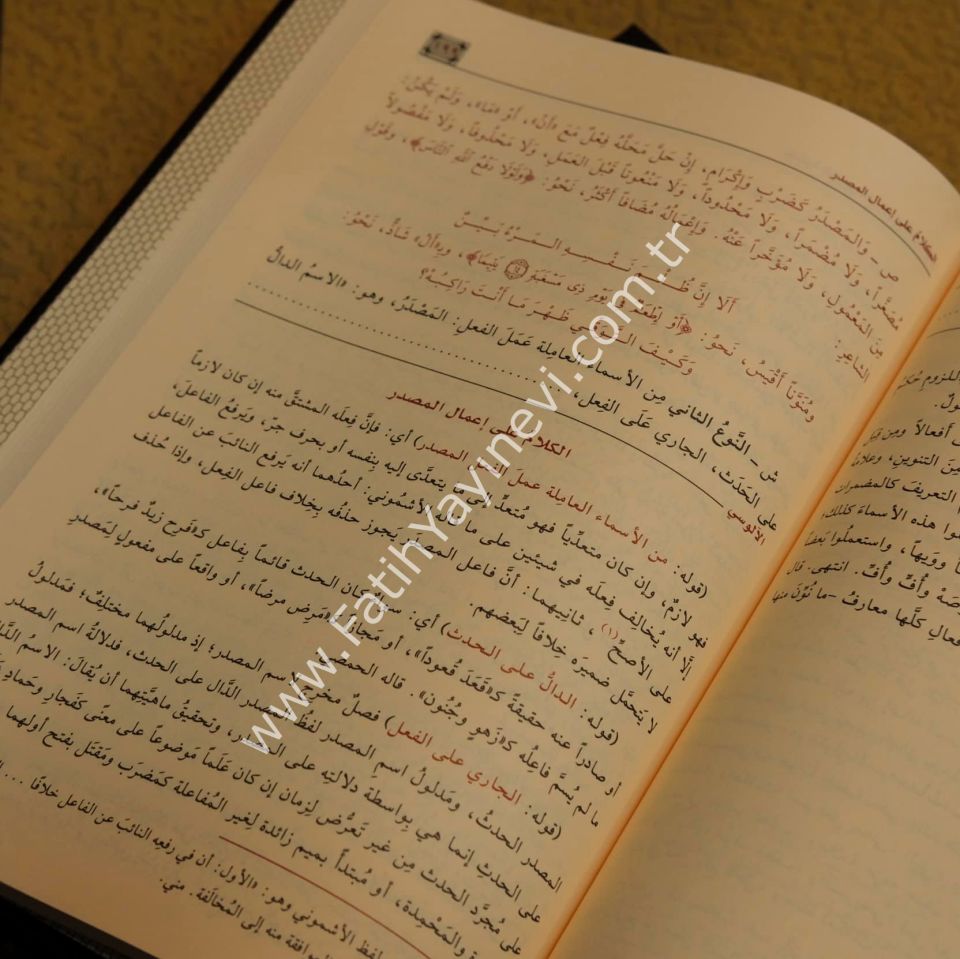 الكلامُ على إعمال المصدر
ص - وَالمَصْدَرُ كَضَرْبٍ وَإِكْرَامٍ، إِنْ حَلَّ مَحَلَّهُ فِعْلٌ مَعَ «أَنْ»، أَوْ «مَا»، وَلَمْ يَكُنْ:
مُصَغَّراً، وَلَا مُضْمَراً، وَلَا مَحْدُوداً، وَلَا مَنْعُوتاً قَبْلَ العَمَلِ، وَلَا مَحْذُوفاً، وَلَا مَفْصُولاً
مِنَ المَعْمُولِ، وَلَا مُؤَخَّراً عَنْهُ. وَإِعْمَالُهُ مُضَافاً أَكْثَرُ، نَحْوُ: ﴿وَلَوْلَا دَفْعُ اللَّهِ النَّاسَ﴾، وَقَوْلِ
الشاعرِ:
أَلَا إِنَّ ظُلْمَ نَفْسِهِ المَرْءُ بَيِّنٌ
وَمُنَوَّناً أَقْيَسُ، نَحْوُ: ﴿أَوْ إِطْعَمٌ فِى يَوْمٍ ذِى مَسْغَبَةٍ ۝ يَتِيمًا﴾، وَبِـ«أَلْ» شَاذٌّ، نَحْوُ:
وَكَيْفَ التَّوَقِّي ظَهْرَ مَا أَنْتَ رَاكِبُهْ؟
ش - النَّوعُ الثاني مِن الأسماءِ العامِلة عَمَلَ الفعلِ: المَصْدَرُ، وهو: «الاسمُ الدالُّ
على الحَدَث، الجاري عَلَى الفِعل، ........
الألوسي
الكلام على إعمال المصدر
(قوله: من الأسماء العامِلة عملَ الفعل المصدر) أي: فإنَّ فِعلَه المشتقَّ منه إن كان لازماً
فهو لازمٌ، وإن كان متعدِّياً فهو متعدٍّ إلى ما يتعدَّى إليه بنفسه أو بحرف جرّ، ويَرفعُ الفاعلَ،
إلَّا أنه يُخالِف فِعلَه في شيئين على ما قاله الأُشْمُوني: أحدُهما أنه يَرفع النائبَ عن الفاعل
على الأصحّ(١)، ثانِيهما: أنَّ فاعل المصدر يَجوز حذفُه بِخلاف فاعل الفِعل، وإذا حُذف
لا يَتحمَّل ضميرَه خِلافاً لِبَعضهم.
(قوله: الدالُّ على الحدث) أي: سواء كان الحدث قائماً بِفاعل كـ«فَرِح زيدٌ فرحاً»،
أو صادراً عنه حقيقةً كـ«قَعَدَ قُعوداً»، أو مَجازاً كـ«مَرِض مرضاً»، أو واقعاً على مفعولٍ لِمَصدرِ
ما لم يُسمَّ فاعِلُه كـ«زَهوٍ وجُنُون». قاله الحمصي.
(قوله: الجاري على الفعل) فصلٌ مخرجٌ اسم المصدر؛ إذ مدلولُهما مختلِفٌ؛ فمَدلولُ
المصدر الحدثُ، ومَدلولُ اسمِ المصدر لفظُ المصدر الدَّال على الحدث، فدلالةُ اسم المصدر
على الحدثِ إنما هي بِواسطة دلالتِه على المصدر، وتحقيقُ ماهيَّتِهما أن يُقالَ: الاسمُ الدَّالُّ
على مُجرَّد الحدث مِن غير تَعرُّض لِزمان إن كان عَلَماً مَوضوعاً على معنًى كفَجارِ وحَمادِ
والمَحْمِدة، أو مُبتدأً بميم زائدة لِغير المُفاعلة كمَضرَب ومَقتَل بفتح أولهما
لفظ الأشموني وهو: «الأول: أن في رفعِه النائبَ عن الفاعل خلافًا ...
إلى المُخالَفة. مني.
لِلزوم
أفعالاً ومِن قِبَل
مِنَ التنوين، وعلامة
التعريفَ كالمضمرات
هذه الأسماءَ كذلك،
وَوَيهاً، واستعملُوا بعضَ
وصَهٍ وأُفٍّ وأُفٍّ. انتهى. قال
كلَّها معارفُ -ما نُوِّنَ منها
www.FatihYayinevi.com.tr